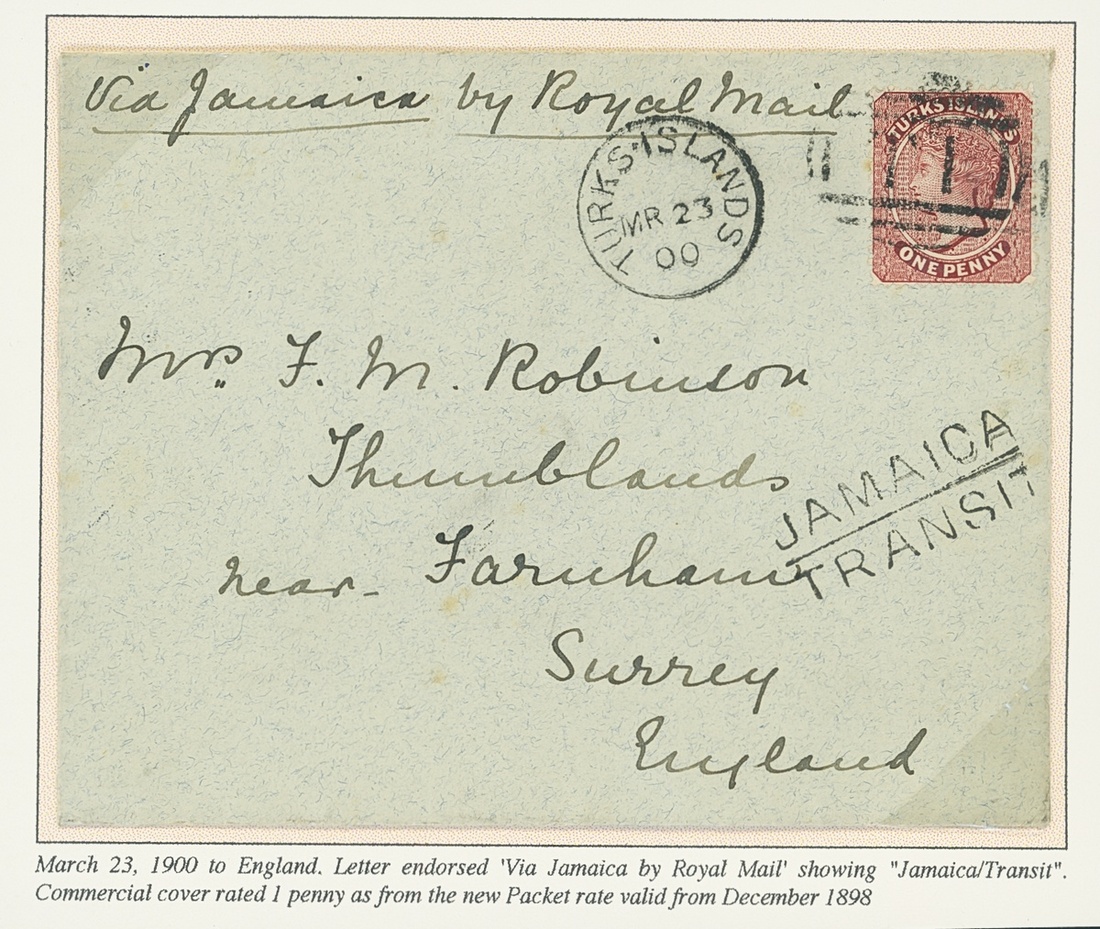 Via Jamaica by Royal Mail
TURKS ISLANDS
ONE PENNY
TURKS·ISLANDS
MR 23
00
Mrs. F. M. Robinson
Thumblands
near Farnham
Surrey
England
JAMAICA
TRANSIT
March 23, 1900 to England. Letter endorsed 'Via Jamaica by Royal Mail' showing "Jamaica/Transit".
Commercial cover rated 1 penny as from the new Packet rate valid from December 1898